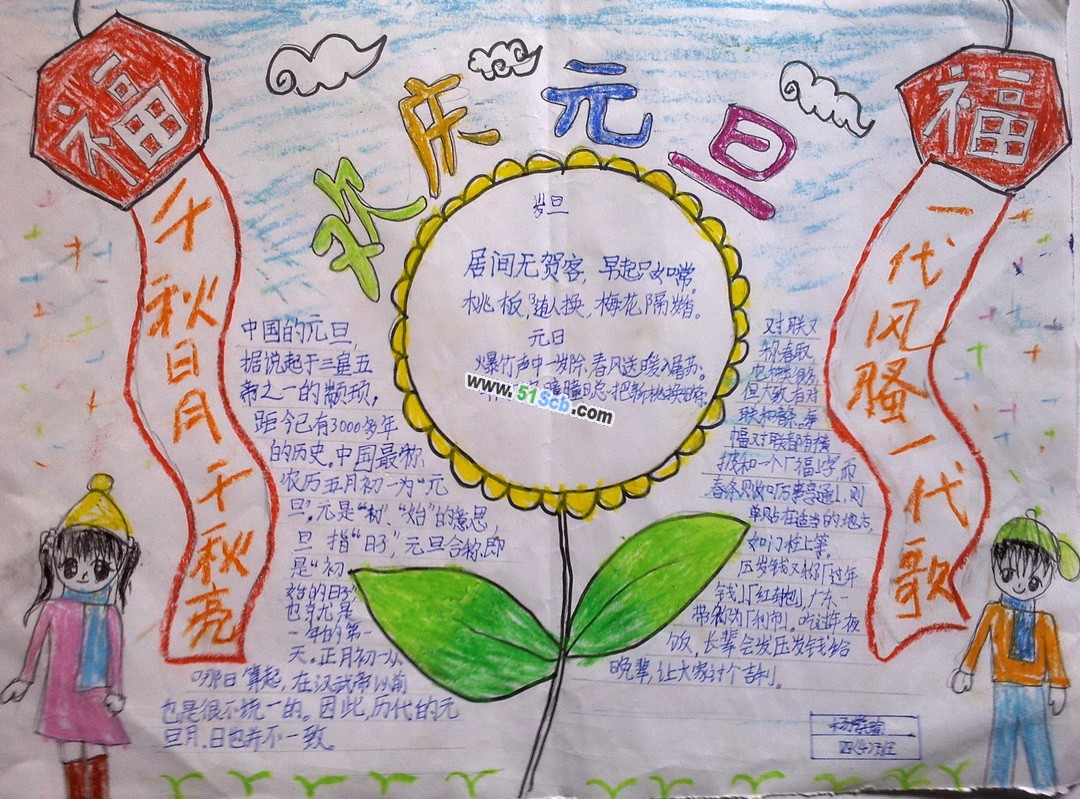 福
福
欢庆元旦
千秋日月千秋亮
一代风骚一代歌
岁旦
居间无贺客，早起只如常。
桃板随人换，梅花隔
元日
爆竹声中一岁除，春风送暖入屠苏。
瞳瞳日总把新桃换旧
www.51Scb.com
中国的元旦，
据说起于三皇五
帝之一的颛顼，
距今已有3000多年
的历史。中国最称
农历五月初一为“元
旦”。元是“初”、“始”的意思，
旦 指“日子”，元旦合称即
是“初
始的日子”
也就是
一年的第一
天。正月初一从
哪日算起，在汉武帝以前
也是很不统一的。因此，历代的元
旦月、日也并不一致。
对联又
但大致有对
联和
幅对联都有横
披和一个「福」字而
春条则如万事亨通」，则
单贴在适当的地方，
如门柱上等。
压岁钱又称「过年
钱」「红封包」，广东一
带称为「利市」。吃过年夜
饭，长辈会发压岁钱给
晚辈，让大家讨个吉利。
四(4)班